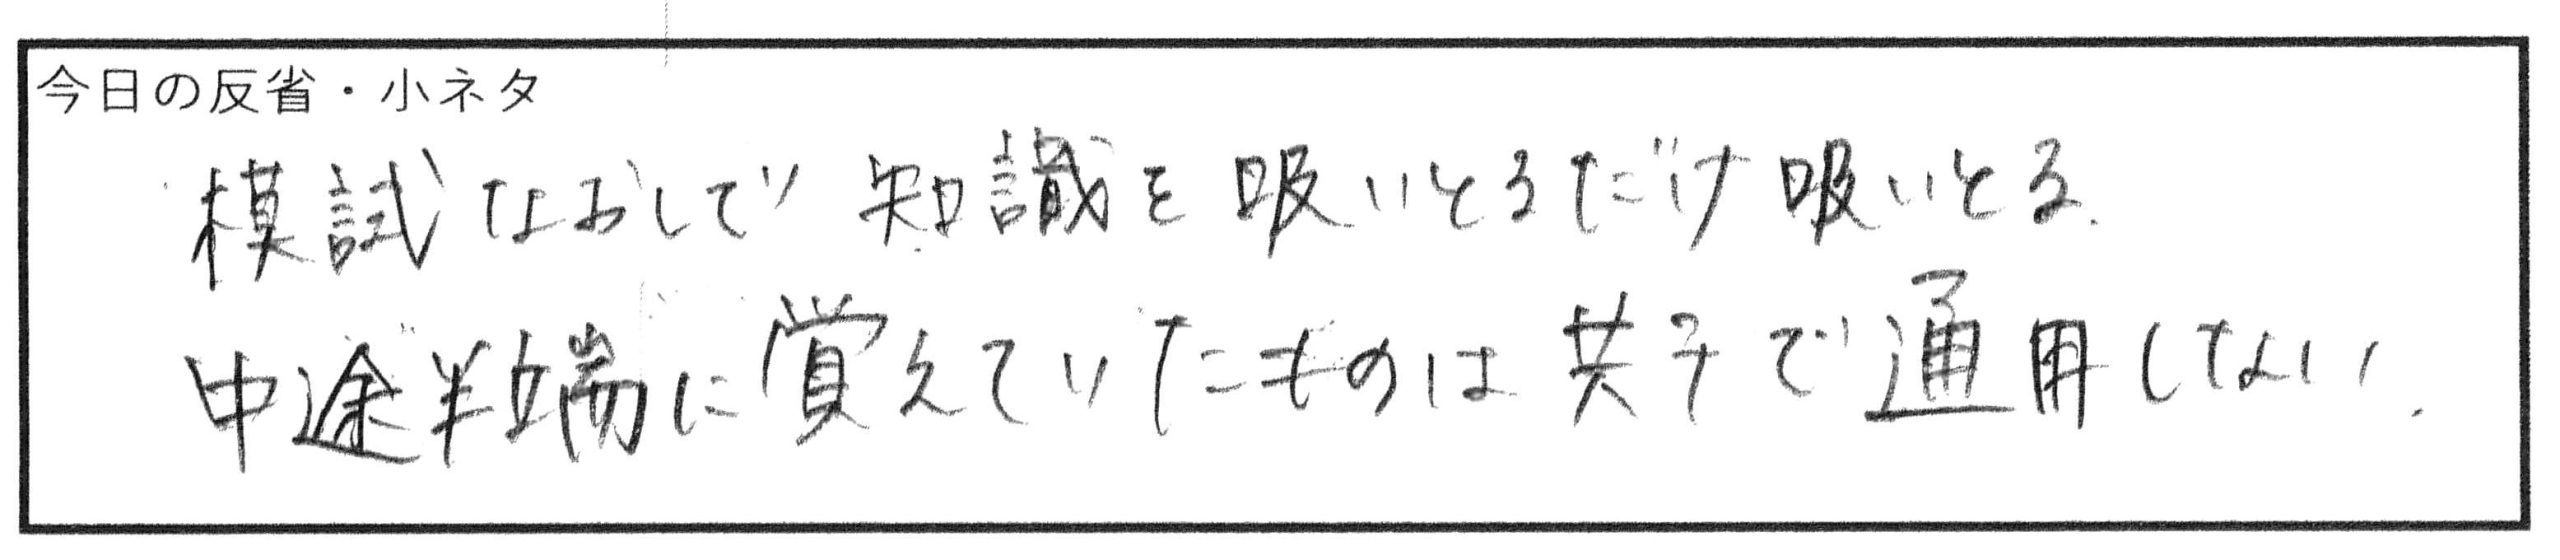 今日の反省・小ネタ
模試なおしで知識を吸いとるだけ吸いとる.
中途半端に覚えていたものは共テで通用しない.